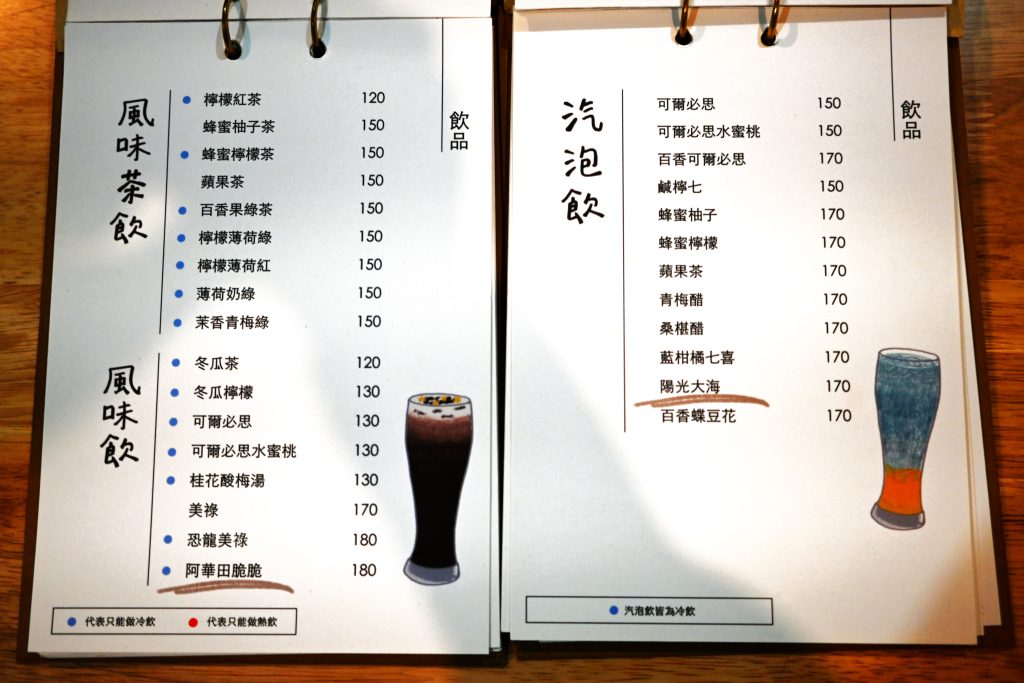 飲品
風味茶飲
● 檸檬紅茶 120
蜂蜜柚子茶 150
● 蜂蜜檸檬茶 150
蘋果茶 150
● 百香果綠茶 150
● 檸檬薄荷綠 150
● 檸檬薄荷紅 150
● 薄荷奶綠 150
● 茉香青梅綠 150
風味飲
● 冬瓜茶 120
● 冬瓜檸檬 130
● 可爾必思 130
● 可爾必思水蜜桃 130
● 桂花酸梅湯 130
美祿 170
● 恐龍美祿 180
● 阿華田脆脆 180
● 代表只能做冷飲 ● 代表只能做熱飲
飲品
汽泡飲
可爾必思 150
可爾必思水蜜桃 150
百香可爾必思 170
鹹檸七 150
蜂蜜柚子 170
蜂蜜檸檬 170
蘋果茶 170
青梅醋 170
桑椹醋 170
藍柑橘七喜 170
陽光大海 170
百香蝶豆花 170
● 汽泡飲皆為冷飲